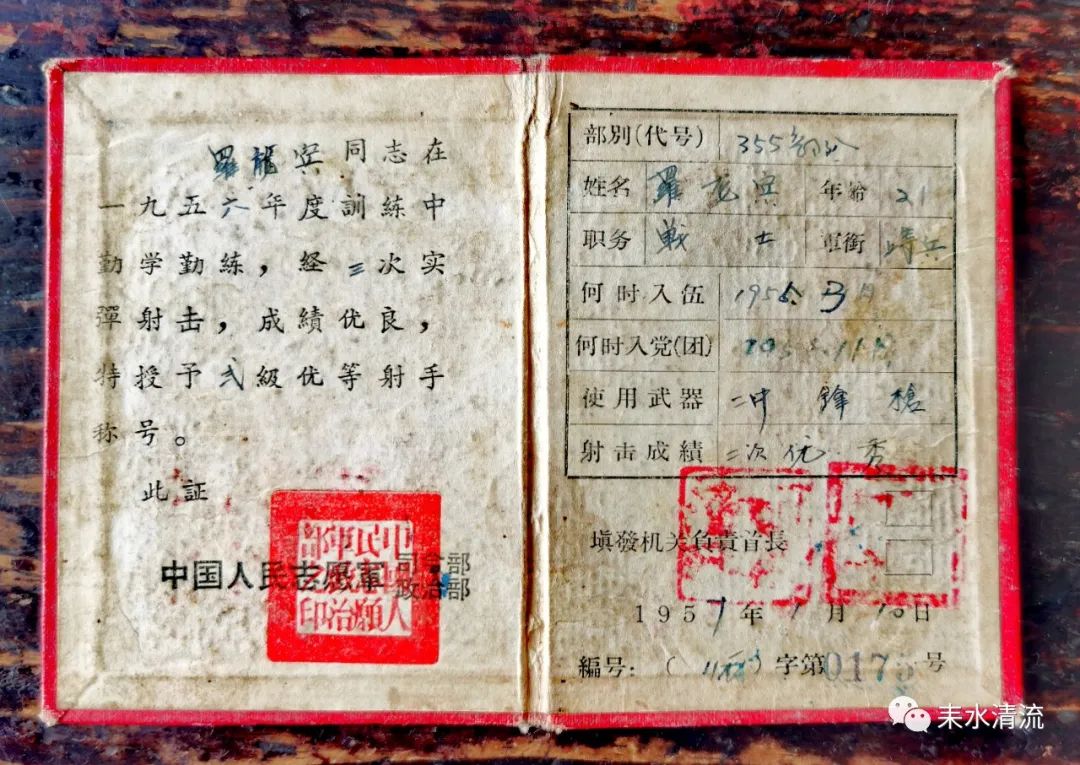 羅龍宾同志在
一九五六年度訓練中
勤学勤练，经三次实
彈射击，成績优良，
特授予弍級优等射手
称号。
此証
中国人民志愿軍司令部
政治部
中国人民志願軍政治部之印
部别(代号) 355部队
姓名 羅龙宾 年龄 21
职务 戰士 軍銜
何时入伍 1955.3月
何时入党(团)
使用武器 冲鋒槍
射击成績 二次优秀
塡發机关負責首長
1957年1月 日
編号:( )字第0175号
耒水清流